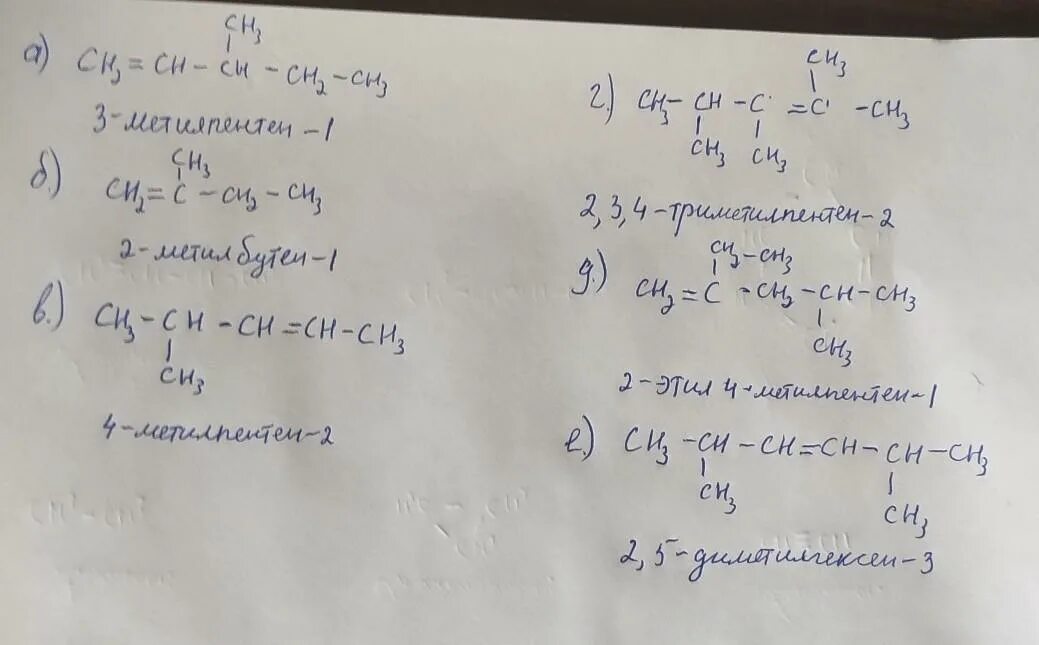 а) CH₃
CH₂ = CH – CH – CH₂ – CH₃
3-метилпентен-1
б.) CH₃
CH₂ = C – CH₂ – CH₃
2-метилбутен-1
в.) CH₃ – CH – CH = CH – CH₃
CH₃
4-метилпентен-2
CH₃
г.) CH₃ – CH – C = C – CH₃
CH₃ CH₃
2,3,4-триметилпентен-2
д.) CH₂ – CH₃
CH₂ = C – CH₂ – CH – CH₃
CH₃
2-этил 4-метилпентен-1
е.) CH₃ – CH – CH = CH – CH – CH₃
CH₃ CH₃
2,5-диметилгексен-3